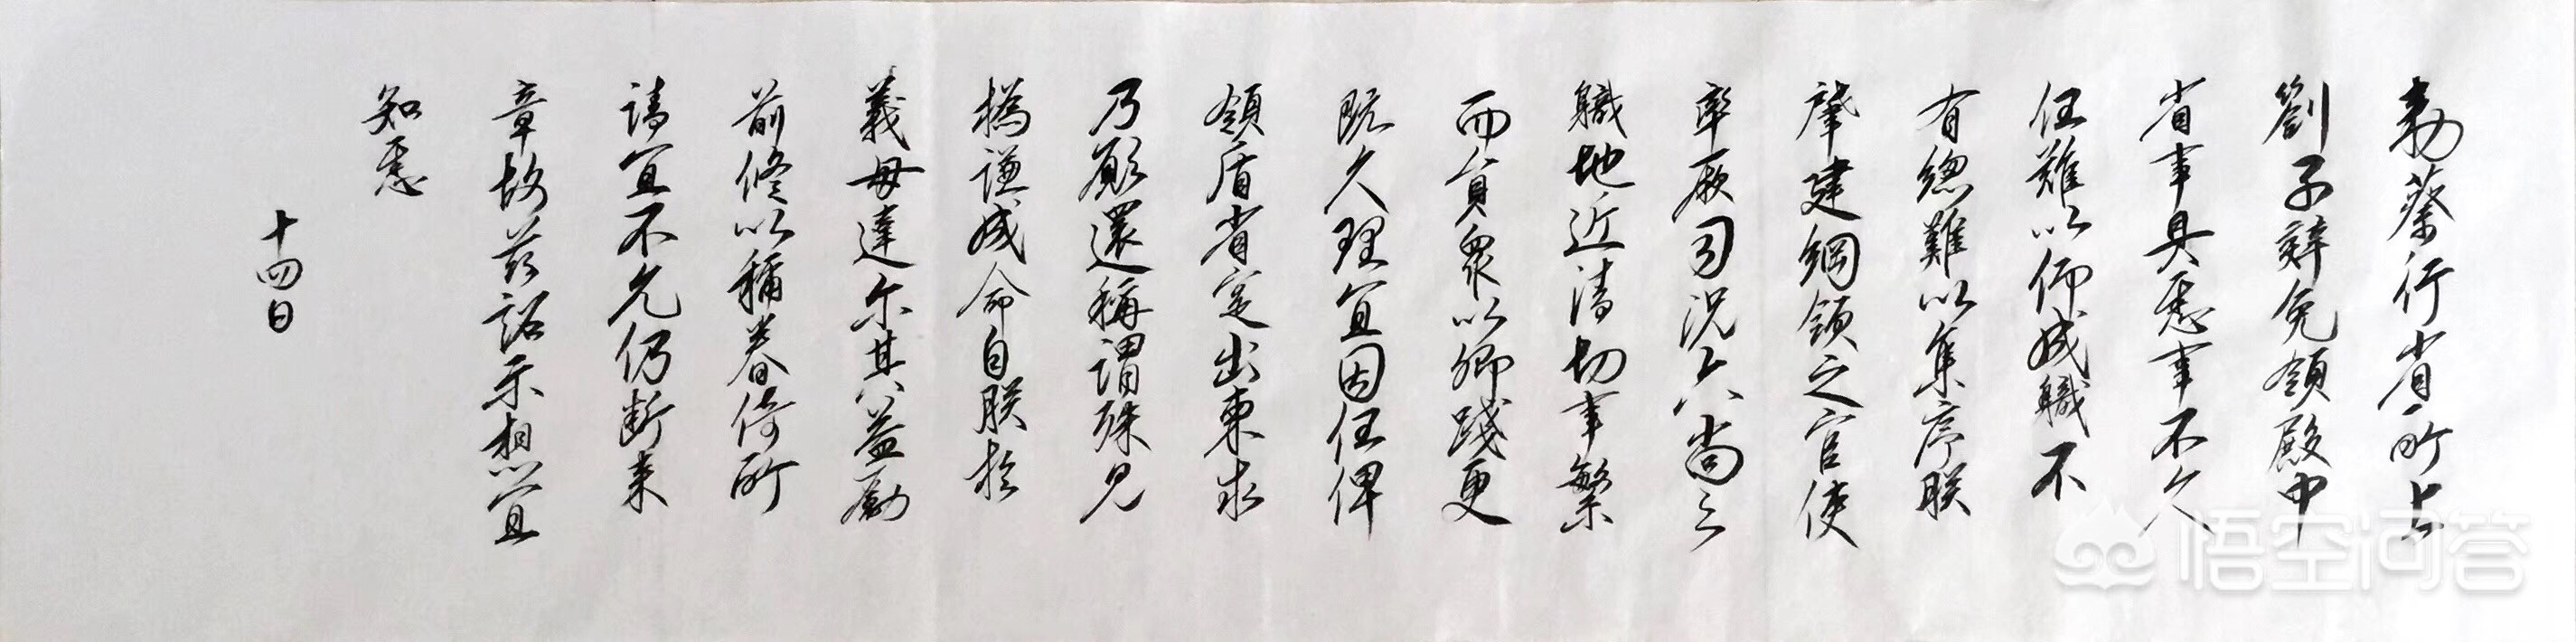 勅蔡行省所上
劄子辞免領殿中
省事具悉事不久
任難以仰成職不
有總難以集序朕
肇建綱領之官使
率厥司況六尚之
職地近清切事繁
而員衆以卿踐更
既久理宜因任俾
領盾省寔出柬求
乃願還稱謂殊見
撝謙成命自朕於
義毋違尓其益勵
前修以稱眷倚所
請宜不允仍断来
章故茲詔示想宜
知悉
十四日
悟空问答